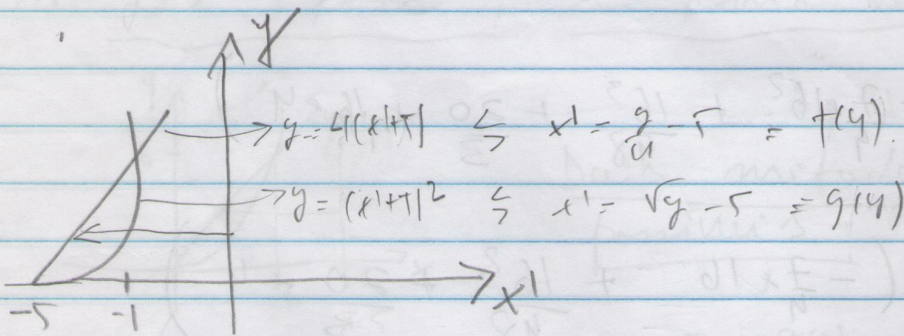 y
→ y = 4(x'+5) ⇔ x' = y/4 - 5 = f(y).
→ y = (x'+5)² ⇔ x' = √y - 5 = g(y)
-5 -1 x'